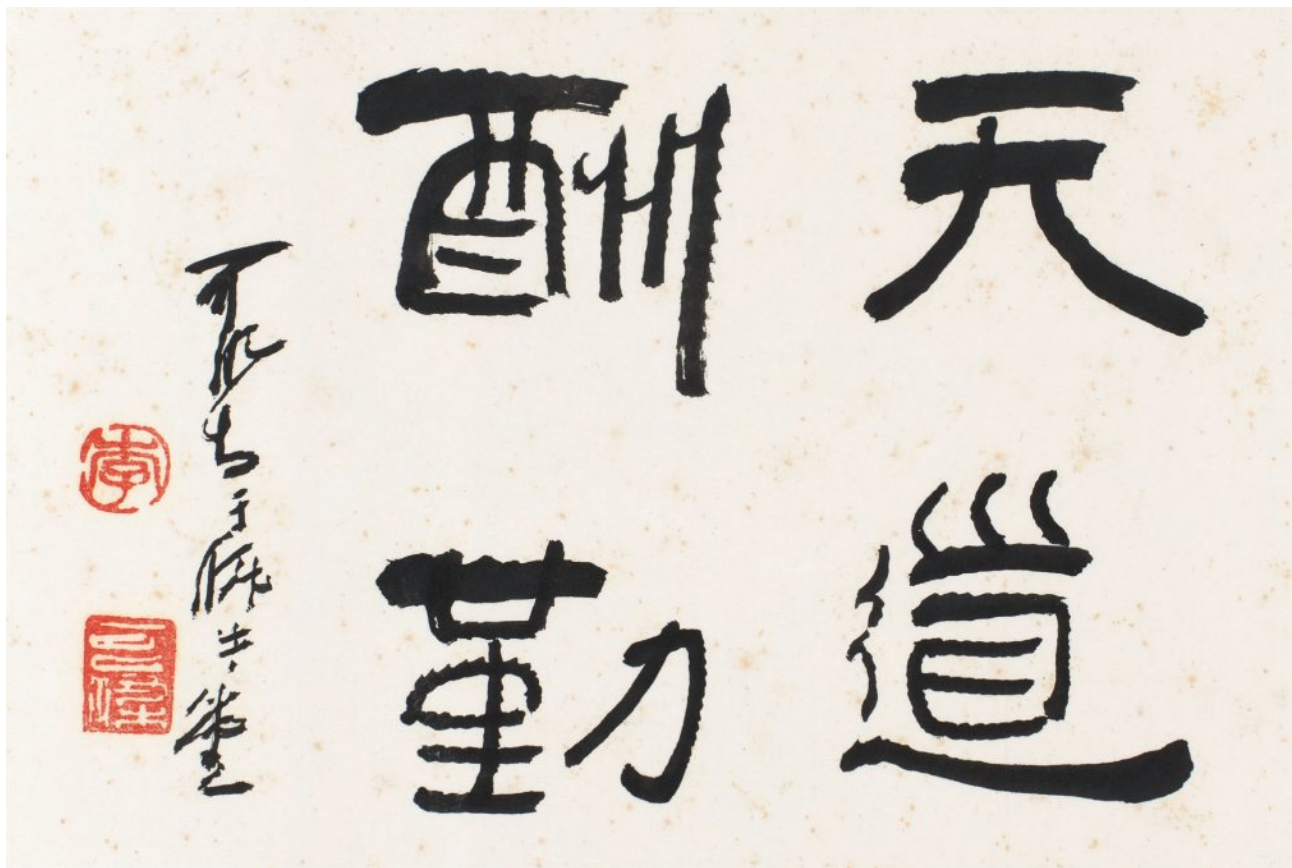 天道
酬勤
可染書于師牛堂
李
可染